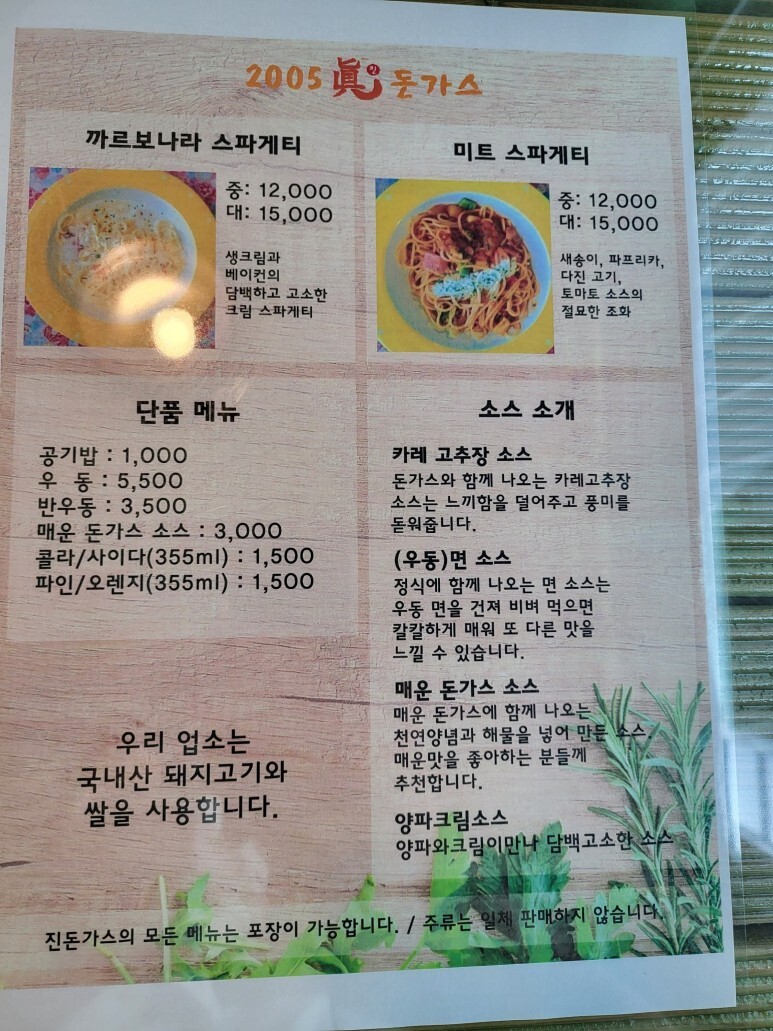 2005 眞 진 돈가스
까르보나라 스파게티
중: 12,000
대: 15,000
생크림과
베이컨의
담백하고 고소한
크림 스파게티
미트 스파게티
중: 12,000
대: 15,000
새송이, 파프리카,
다진 고기,
토마토 소스의
절묘한 조화
단품 메뉴
공기밥 : 1,000
우 동 : 5,500
반우동 : 3,500
매운 돈가스 소스 : 3,000
콜라/사이다(355ml) : 1,500
파인/오렌지(355ml) : 1,500
우리 업소는
국내산 돼지고기와
쌀을 사용합니다.
소스 소개
카레 고추장 소스
돈가스와 함께 나오는 카레고추장
소스는 느끼함을 덜어주고 풍미를
돋워줍니다.
(우동)면 소스
정식에 함께 나오는 면 소스는
우동 면을 건져 비벼 먹으면
칼칼하게 매워 또 다른 맛을
느낄 수 있습니다.
매운 돈가스 소스
매운 돈가스에 함께 나오는
천연양념과 해물을 넣어 만든 소스.
매운맛을 좋아하는 분들께
추천합니다.
양파크림소스
양파와크림이만나 담백고소한 소스
진돈가스의 모든 메뉴는 포장이 가능합니다. / 주류는 일체 판매하지 않습니다.